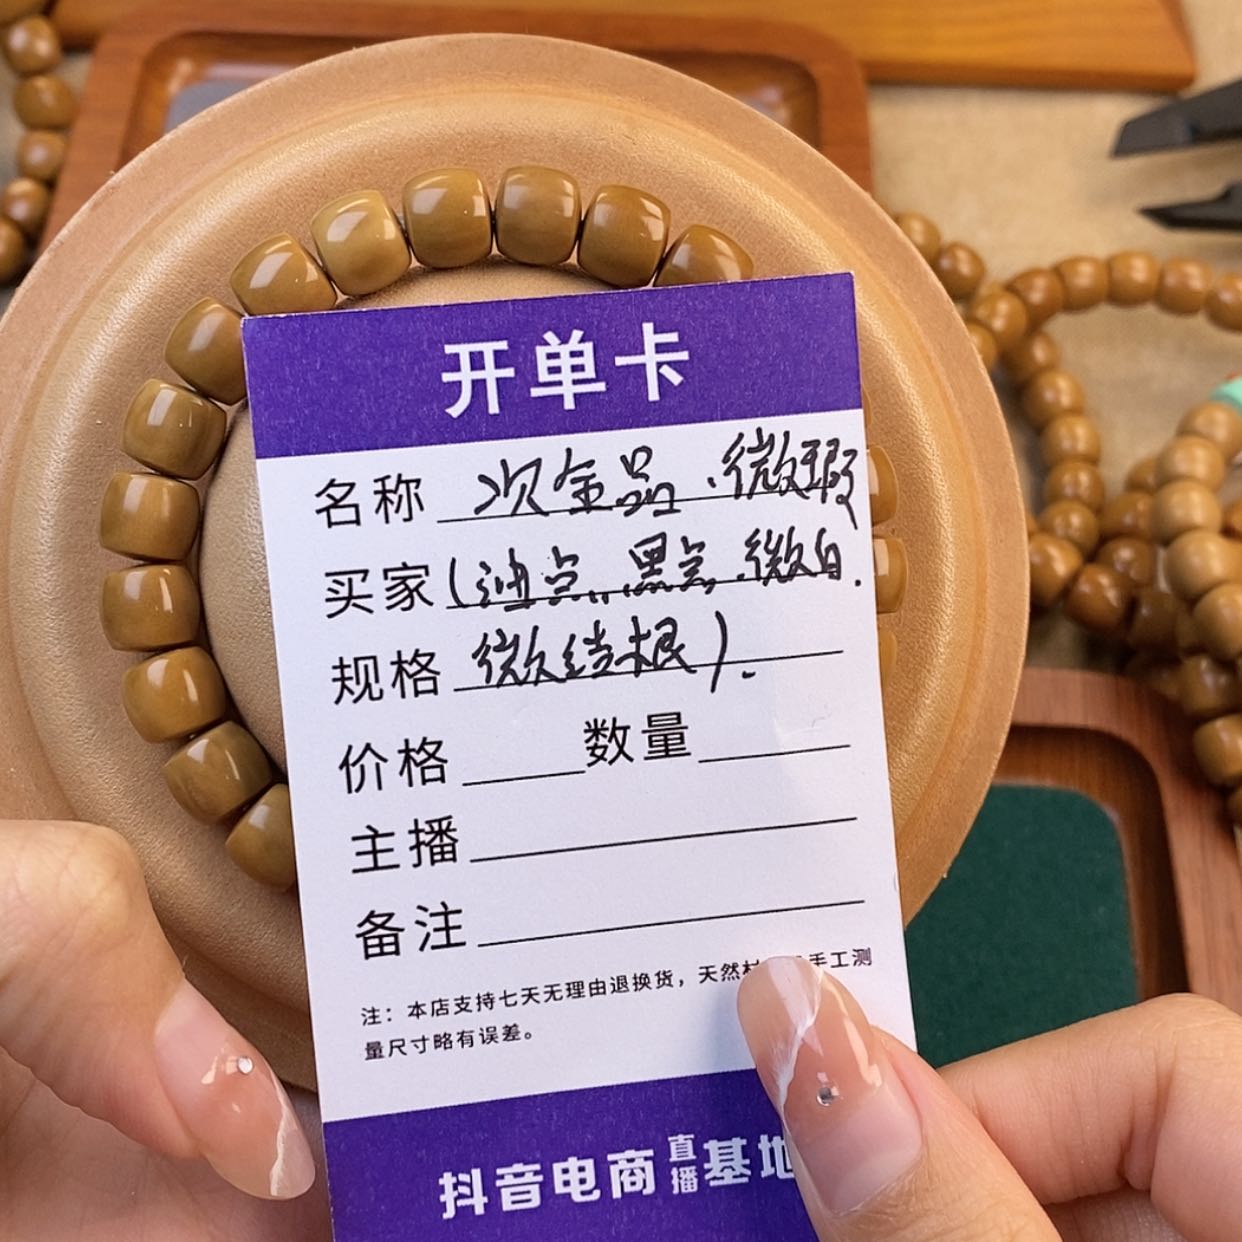 开单卡
名称 次全品.微瑕
买家(油点,黑点.微白.
规格 微结根).
价格 数量
主播
备注
注:本店支持七天无理由退换货,天然材 手工测
量尺寸略有误差。
抖音电商直播基地